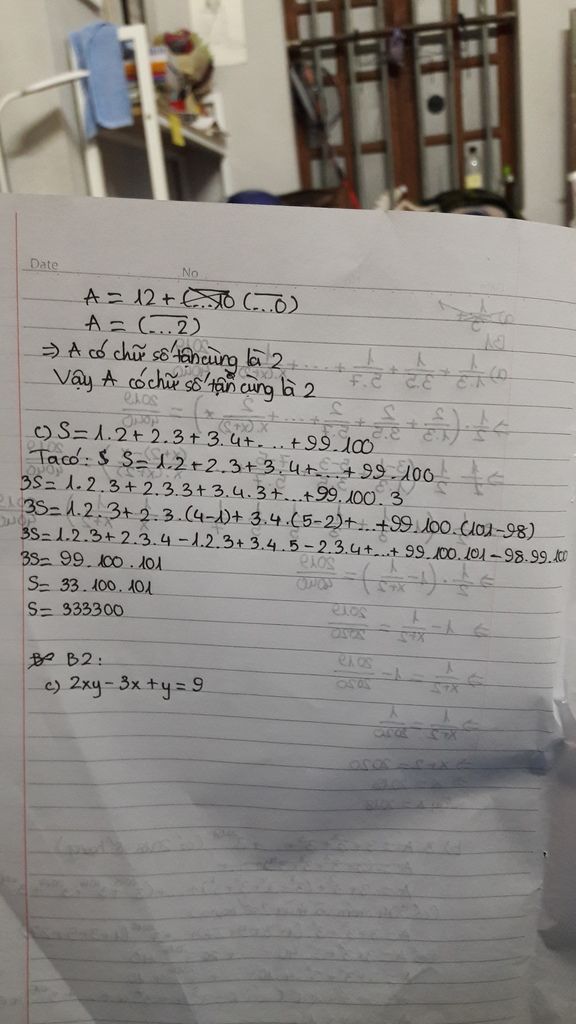 Date No
A = 12 + (...0)
A = (...2)
=> A có chữ số tận cùng là 2
Vậy A có chữ số tận cùng là 2
c) S = 1.2 + 2.3 + 3.4 + ... + 99.100
Ta có: S = 1.2 + 2.3 + 3.4 + ... + 99.100
3S = 1.2.3 + 2.3.3 + 3.4.3 + ... + 99.100.3
3S = 1.2.3 + 2.3.(4-1) + 3.4.(5-2) + ... + 99.100.(101-98)
3S = 1.2.3 + 2.3.4 - 1.2.3 + 3.4.5 - 2.3.4 + ... + 99.100.101 - 98.99.100
3S = 99.100.101
S = 33.100.101
S = 333300
B2:
c) 2xy - 3x + y = 9